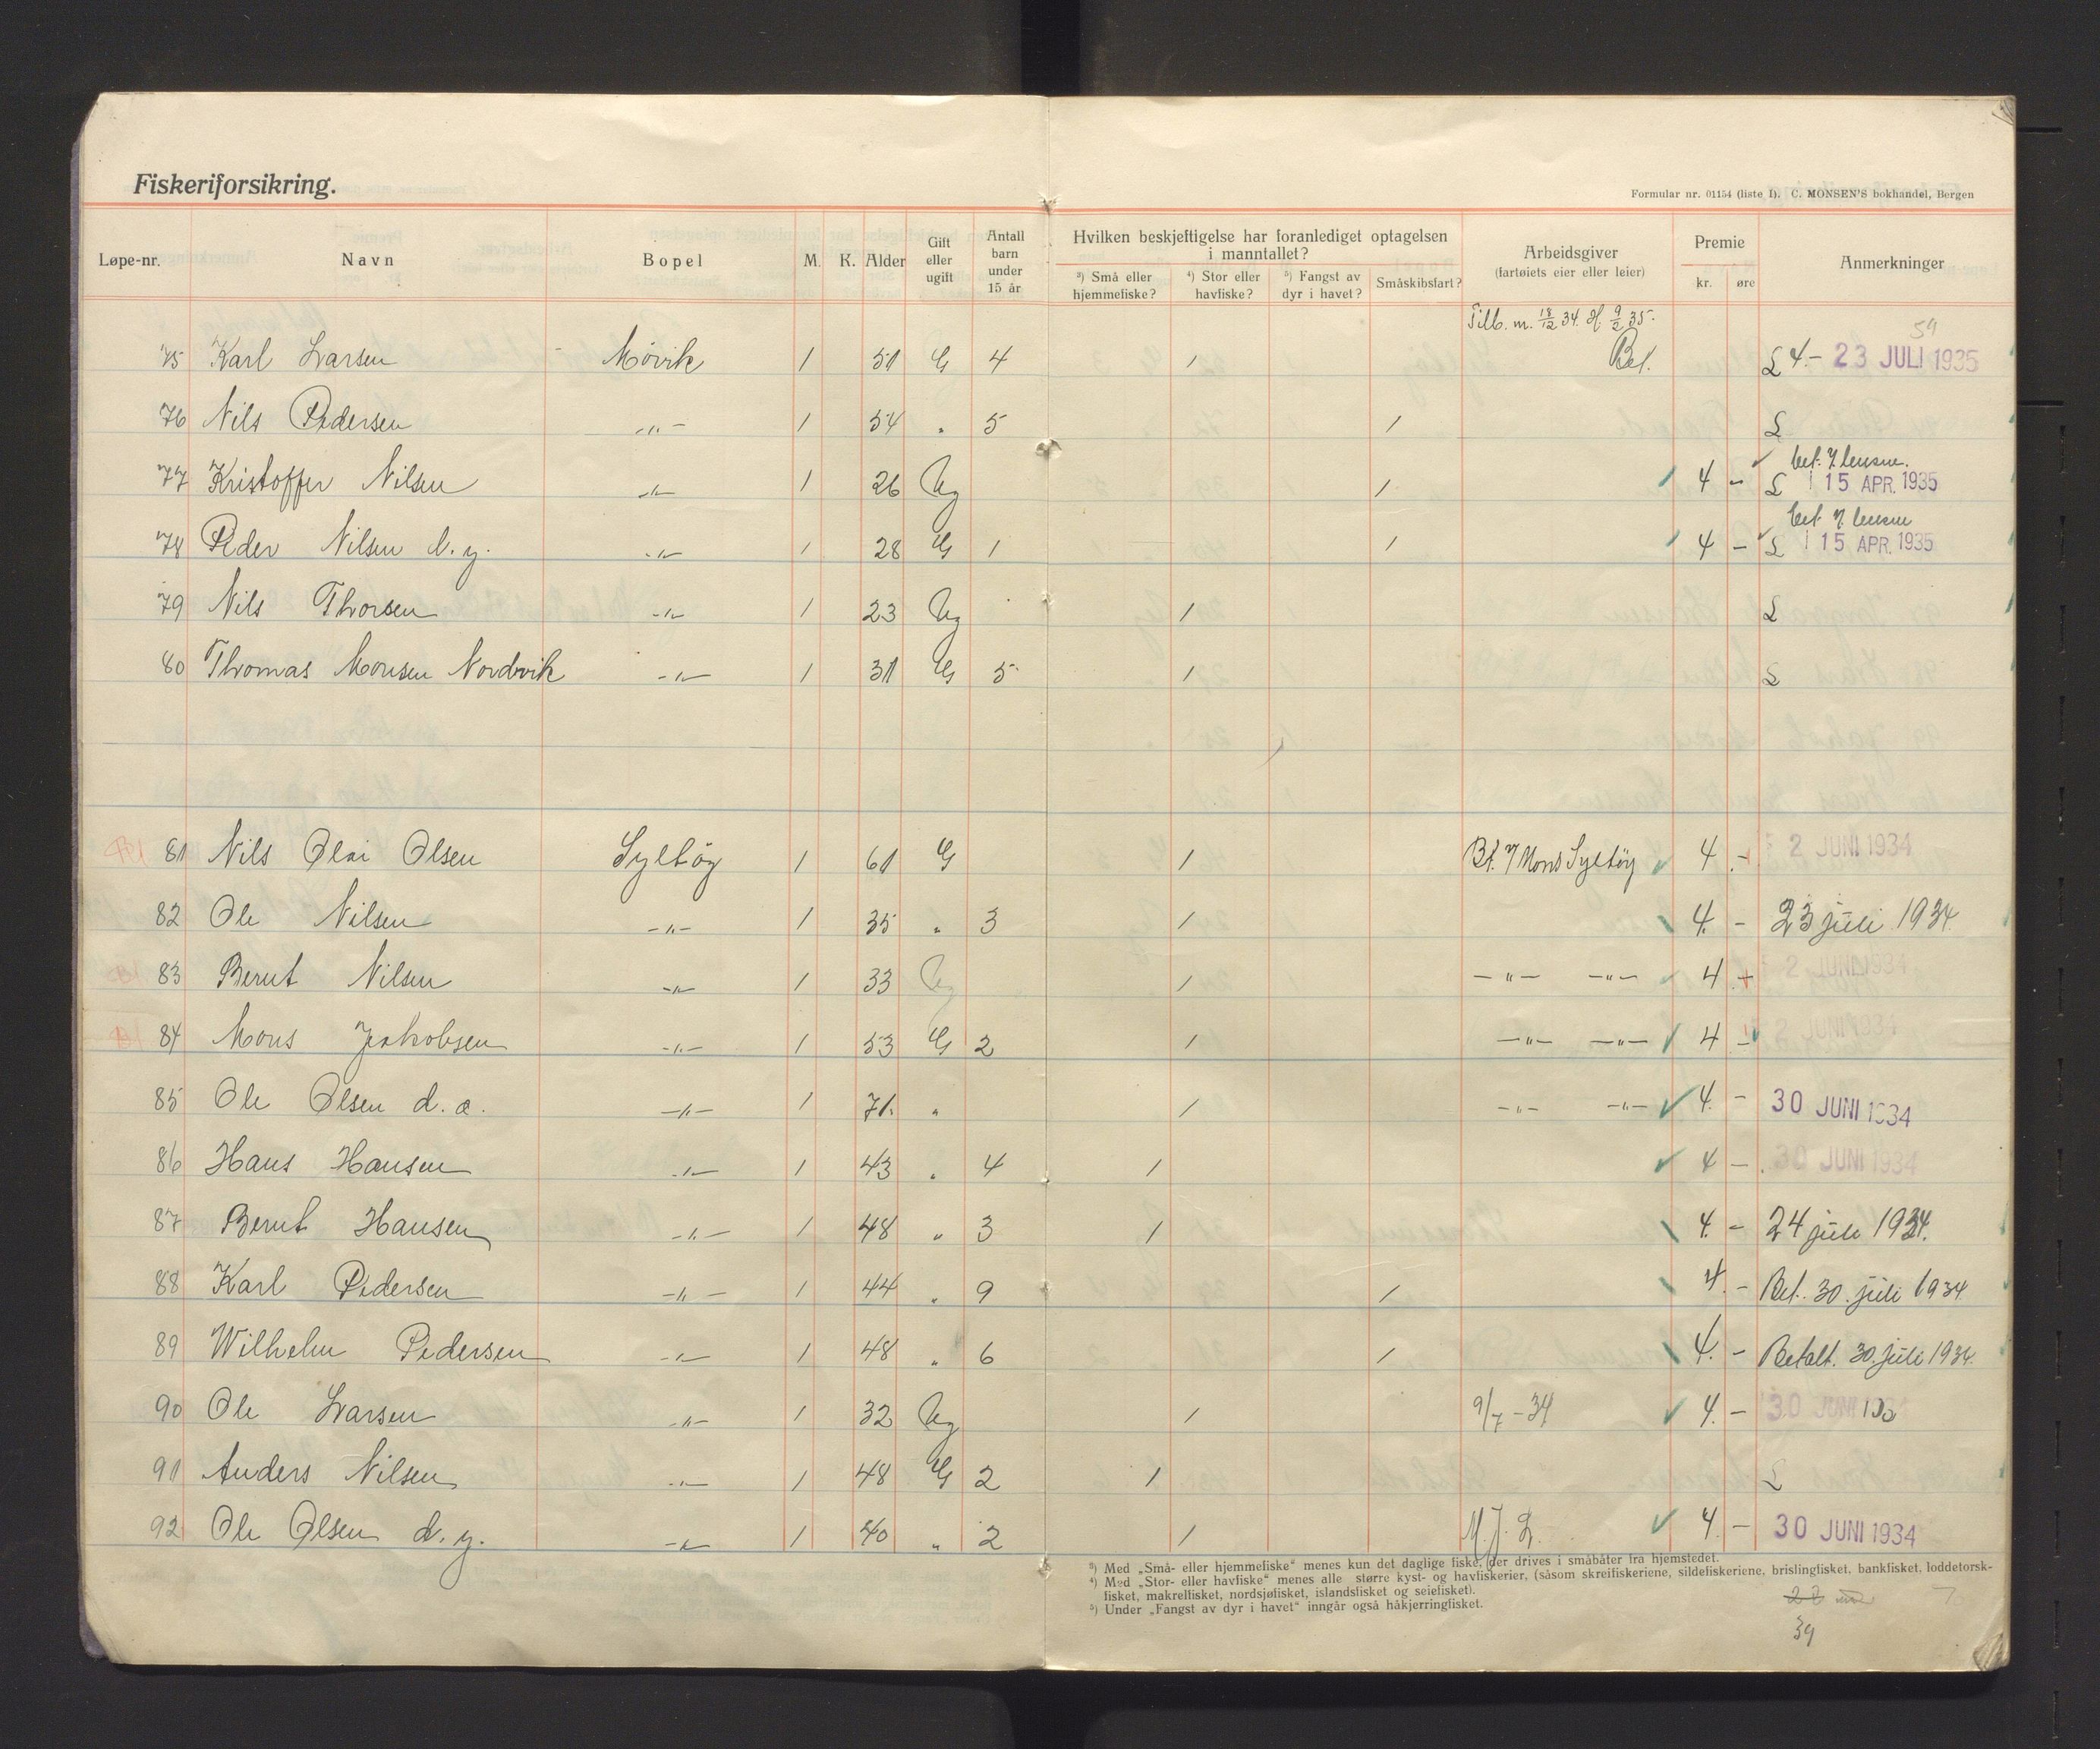 Fiskeriforsikring.
Formular nr. 01154 (liste I). C. MONSEN'S bokhandel, Bergen
Løpe-nr. Navn Bopel M. K. Alder Gift eller ugift Antall barn under 15 år Hvilken beskjeftigelse har foranlediget optagelsen i manntallet? ³) Små eller hjemmefiske? ⁴) Stor eller havfiske? ⁵) Fangst av dyr i havet? Småskibsfart? Arbeidsgiver (fartøiets eier eller leier) Premie kr. øre Anmerkninger
Tilb. m. 18/12 34. 9/2 35.
59
75 Karl Larsen Mövik 1 51 G 4 1 Bet. L 4.- 23 JULI 1935
76 Nils Pedersen -"- 1 54 " 5 1 L
bet.
77 Kristoffer Nilsen -"- 1 26 Ug 1 4 - L 15 APR. 1935
bet.
78 Peder Nilsen d.y. -"- 1 28 G 1 1 4 - L 15 APR. 1935
79 Nils Thorsen -"- 1 23 Ug 1 L
80 Thomas Monsen Nordvik -"- 1 31 G 5 1 L
81 Nils Olai Olsen Syltöy 1 61 G 1 Bt. Mons Syltöy 4 .- 2 JUNI 1934
82 Ole Nilsen -"- 1 35 " 3 1 4. - 23 juli 1934
83 Bernt Nilsen -"- 1 33 Ug 1 -"- -"- 4 2 JUNI 1934
84 Mons Jakobsen -"- 1 53 G 2 1 -"- -"- 4 - 2 JUNI 1934
85 Ole Olsen d.e. -"- 1 71 " 1 -"- -"- 4. - 30 JUNI 1934
86 Hans Hansen -"- 1 43 " 4 1 4 - 30 JUNI 1934
87 Bernt Hansen -"- 1 48 " 3 1 4. - 24 juli 1934.
88 Karl Pedersen -"- 1 44 " 9 1 4. - Bet. 30. juli 1934
89 Wilhelm Pedersen -"- 1 48 " 6 1 4. - Betalt. 30. juli 1934.
90 Ole Larsen -"- 1 32 Ug 1 9/7-34 4. - 30 JUNI
91 Anders Nilsen -"- 1 48 G 2 1 L
92 Ole Olsen d.y. -"- 1 40 " 2 1 M. J. S. 4. - 30 JUNI 1934
³) Med „Små- eller hjemmefiske“ menes kun det daglige fiske, der drives i småbåter fra hjemstedet.
⁴) Med „Stor- eller havfiske“ menes alle større kyst- og havfiskerier, (såsom skreifiskeriene, sildefiskeriene, brislingfisket, bankfisket, loddetorsk-
fisket, makrelfisket, nordsjøfisket, islandsfisket og seiefisket).
⁵) Under „Fangst av dyr i havet“ inngår også håkjerringfisket.
39